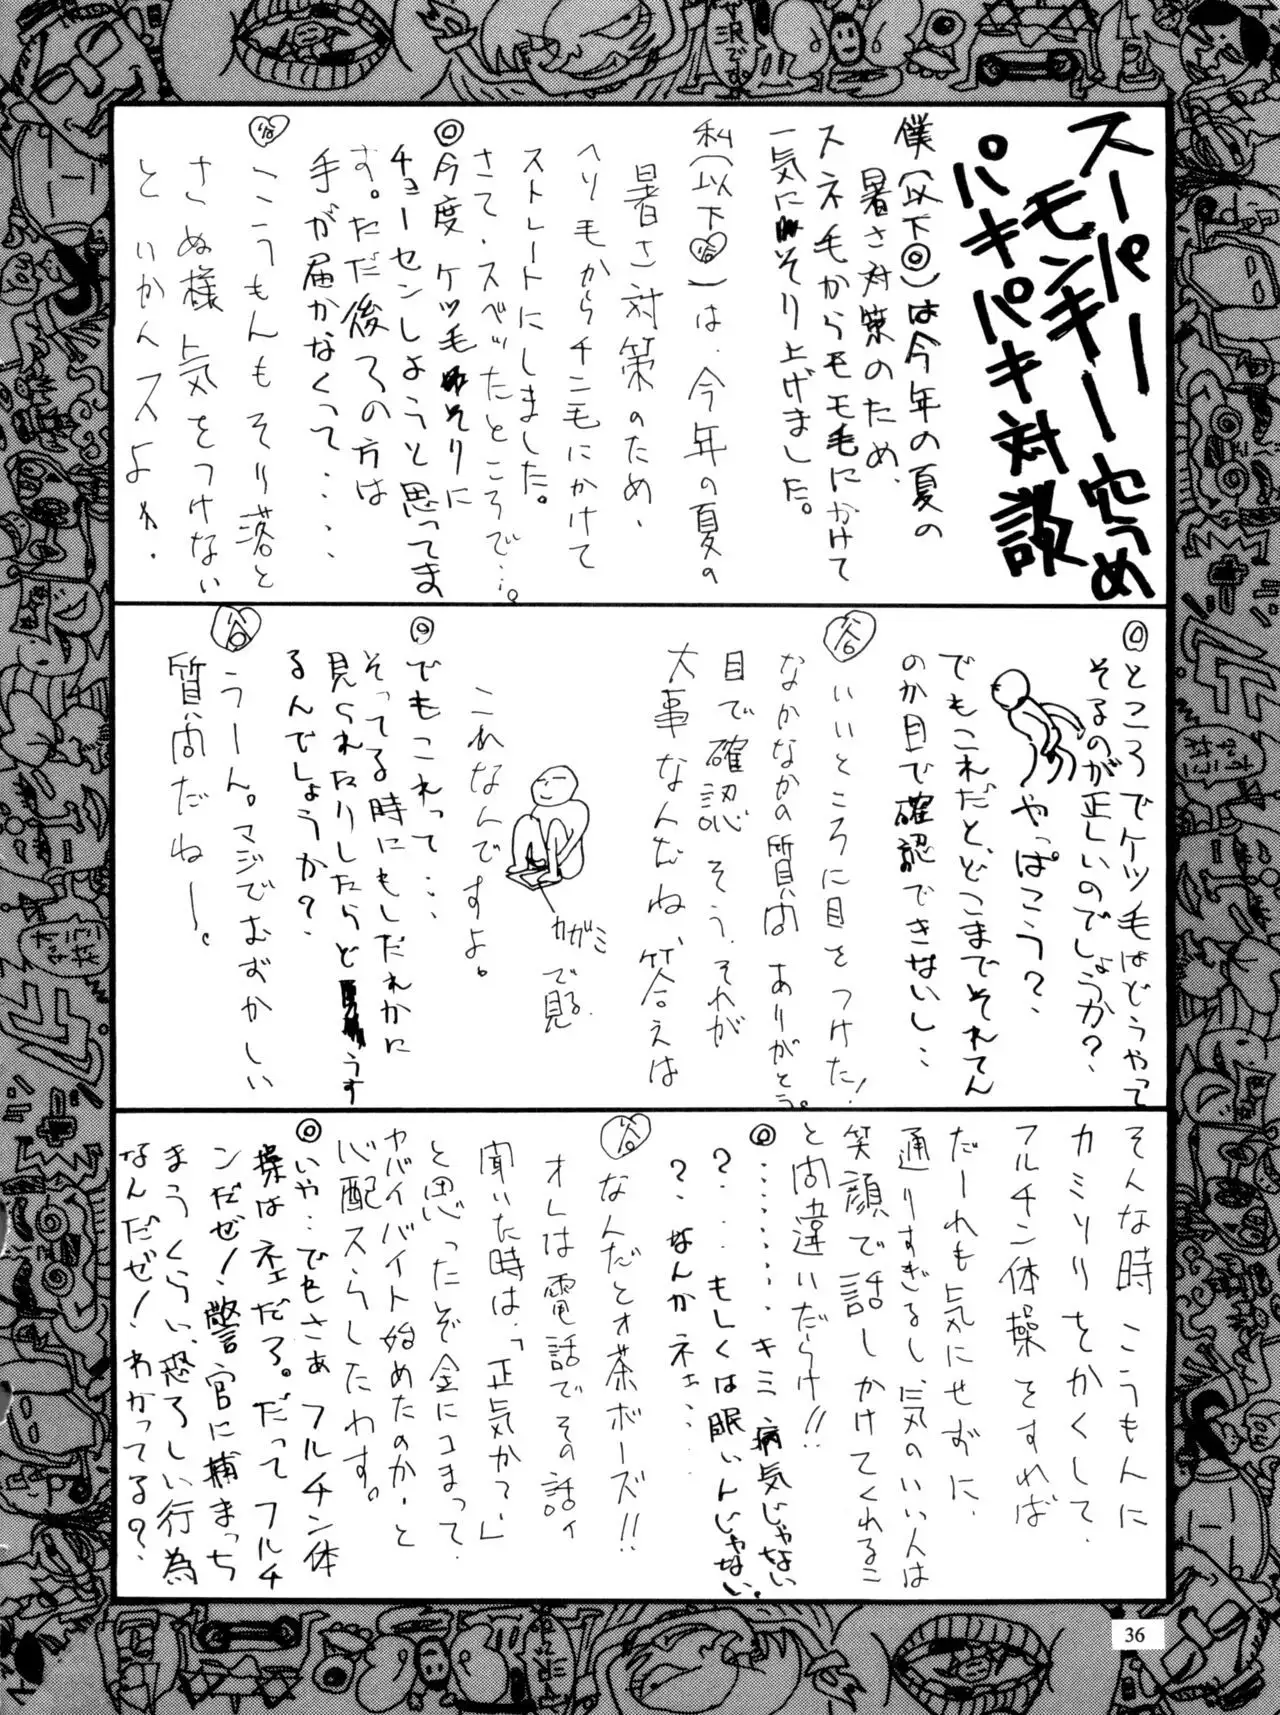 スーパーモンキー穴つめ
パキパキ対談
僕(以下◎)は今年の夏の
暑さ対策のため、
スネ毛からモモ毛にかけて
一気にそり上げました。
私(以下谷)は、今年の夏の
暑さ対策のため、
ヘソ毛からチン毛にかけて
ストレートにしました。
さて、スベッたところで…。
◎今度、ケツ毛そりに
チョーセンしようと思ってま
す。ただ後ろの方は
手が届かなくって・・・・
谷 こうもんもそり落と
さぬ様、気をつけない
といかんスよォ・
◎ところでケツ毛はどうやって
そるのが正しいのでしょうか?
やっぱこう?、
でもこれだと、どこまでそれてん
のか目で確認できないし・・
谷 いいところに目をつけた!
なかなかの質問ありがとう。
目で確認、そう、それが
大事なんだね、答えは
カガミで見る。
これなんですよ。
◎でもこれって・・・
そってる時にもしだれかに
見られたりしたらどうす
るんでしょうか?
谷 うーん。マジでむずかしい
質問だねー。
そんな時こうもんに
カミソリをかくして、
フルチン体操をすれば
だーれも気にせずに、
通りすぎるし、気のいい人は
笑顔で話しかけてくれるこ
と間違いだらけ!!
◎・・・・・・・キミ病気じゃない
?・・・もしくは眠いんじゃない
?、なんかネェ・・・
谷 なんだとォ茶ボーズ!!
オレは電話でその話ィ
聞いた時は、「正気か?」
と思ったぞ金にコまって
ヤバイバイト始めたのか、と
心配スらしたわす。
◎いや・・でもさぁフルチン体
操はネェだろ。だってフルチ
ンだぜ!警官に捕まっち
まうくらい、恐ろしい行為
なんだぜ!わかってる?、
36